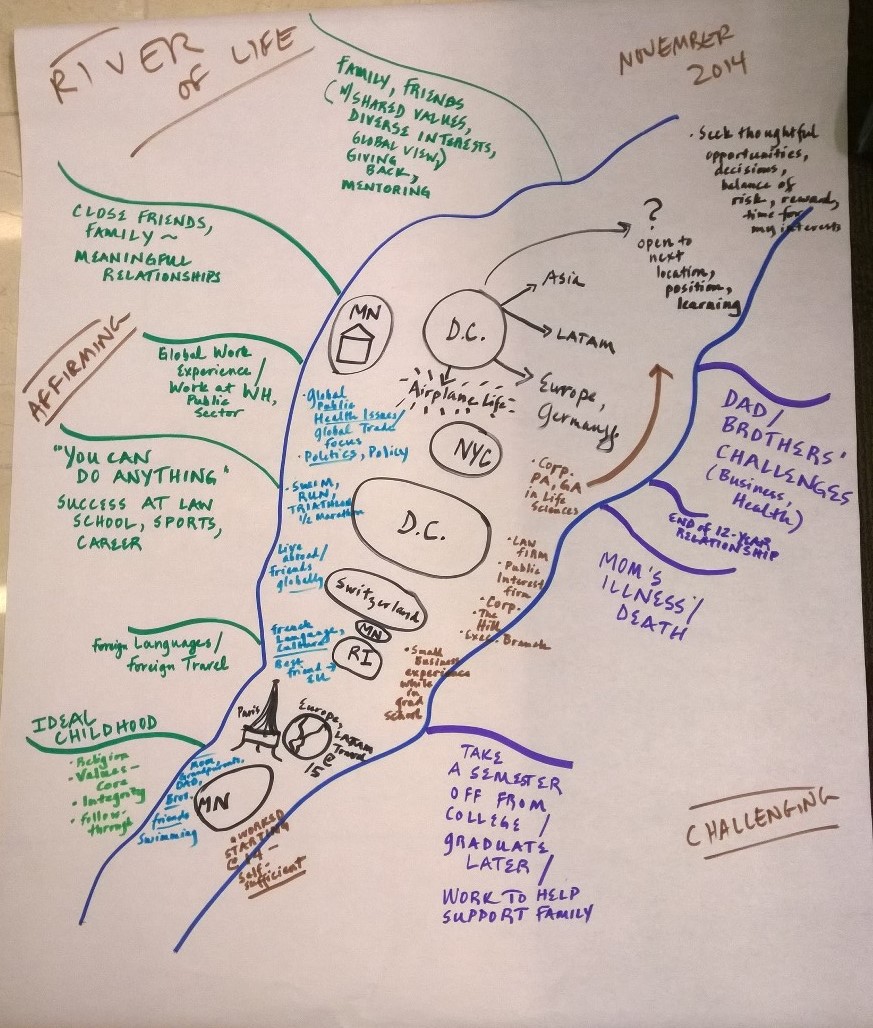 RIVER
OF LIFE
NOVEMBER
2014
FAMILY, FRIENDS
(W/SHARED VALUES,
DIVERSE INTERESTS,
GLOBAL VIEW)
GIVING
BACK,
MENTORING
• Seek thoughtful
opportunities,
decisions,
balance of
risk, reward,
time for
my interests
CLOSE FRIENDS,
FAMILY ~
MEANINGFUL
RELATIONSHIPS
?
open to
next
location,
position,
learning
MN
D.C.
Asia
LATAM
Europe,
Germany
Airplane Life
AFFIRMING
Global Work
Experience/
Work at WH,
Public
Sector
• Global
Public
Health Issues/
global Trade
focus
• Politics, Policy
NYC
DAD/
BROTHERS'
CHALLENGES
(Business,
Health)
"YOU CAN
DO ANYTHING"
SUCCESS AT LAW
SCHOOL, SPORTS,
CAREER
• SWIM,
RUN,
TRIATHLON
1/2 Marathon
D.C.
• Corp.
PA, GA
in Life
Sciences
END OF 12-YEAR
RELATIONSHIP
MOM'S
ILLNESS/
DEATH
Live
abroad/
friends
globally
Switzerland
• LAW
FIRM
• Public
Interest
firm
• Corp.
• The
Hill
• Exec. Branch
Foreign Languages/
Foreign Travel
French
Language,
Culture
Best
friend →
EU
MN
RI
• Small
Business
experience
while
in
grad
school
IDEAL
CHILDHOOD
• Religion
• Values –
Core
• Integrity
• Follow-
through
Paris
Europe,
LATAM
Travel
@
15
Mom,
Grandparents,
DAD,
Bros.
friends
Swimming
MN
• WORKED
STARTING
@ 14 –
Self-
sufficient
TAKE
A SEMESTER
OFF FROM
COLLEGE /
GRADUATE
LATER /
WORK TO HELP
SUPPORT FAMILY
CHALLENGING